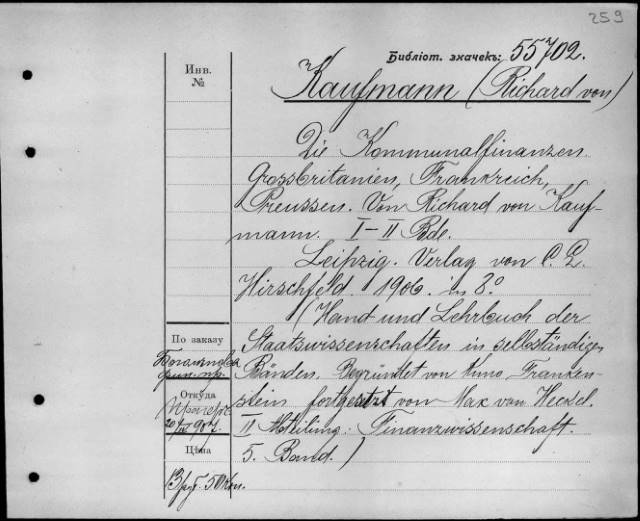 259
Библіот. значекъ: 55702.
Инв.
№
Kaufmann (Richard von)
Die Kommunalfinanzen.
Grossbritanien, Frankreich,
Preussen. Von Richard von Kauf-
mann. I–II Bde.
Leipzig. Verlag von C. L.
Hirschfeld. 1906. in 8°
(Hand und Lehrbuch der
Staatswissenschaften in selbständigen
Bänden. Begründet von Kuno Franken-
stein fortgesetzt von Max von Heckel.
II Abteilung: Finanzwissenschaft.
5. Band.)
По заказу
Откуда
Цѣна
13 руб. 50 коп.